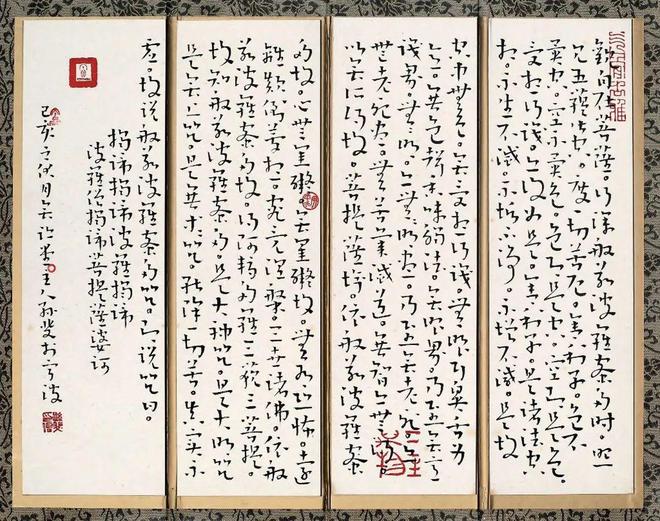 觀自在菩薩。行深般若波羅蜜多時。照
見五蘊皆空。度一切苦厄。舍利子。色不
異空。空不異色。色即是空。空即是色。
受想行識。亦復如是。舍利子。是諸法空
相。不生不滅。不垢不淨。不增不減。是故
空中無色。無受想行識。無眼耳鼻舌身
意。無色聲香味觸法。無眼界。乃至無意
識界。無無明。亦無無明盡。乃至無老死。亦
無老死盡。無苦集滅道。無智亦無得。
以無所得故。菩提薩埵。依般若波羅蜜
多故。心無罣礙。無罣礙故。無有恐怖。遠
離顛倒夢想。究竟涅槃。三世諸佛。依般
若波羅蜜多故。得阿耨多羅三藐三菩提。
故知般若波羅蜜多。是大神咒。是大明咒
是無上咒。是無等等咒。能除一切苦。真實不
虛。故說般若波羅蜜多咒。即說咒曰。
揭諦揭諦波羅揭諦
波羅僧揭諦菩提薩婆訶
己亥之伏月主人孫